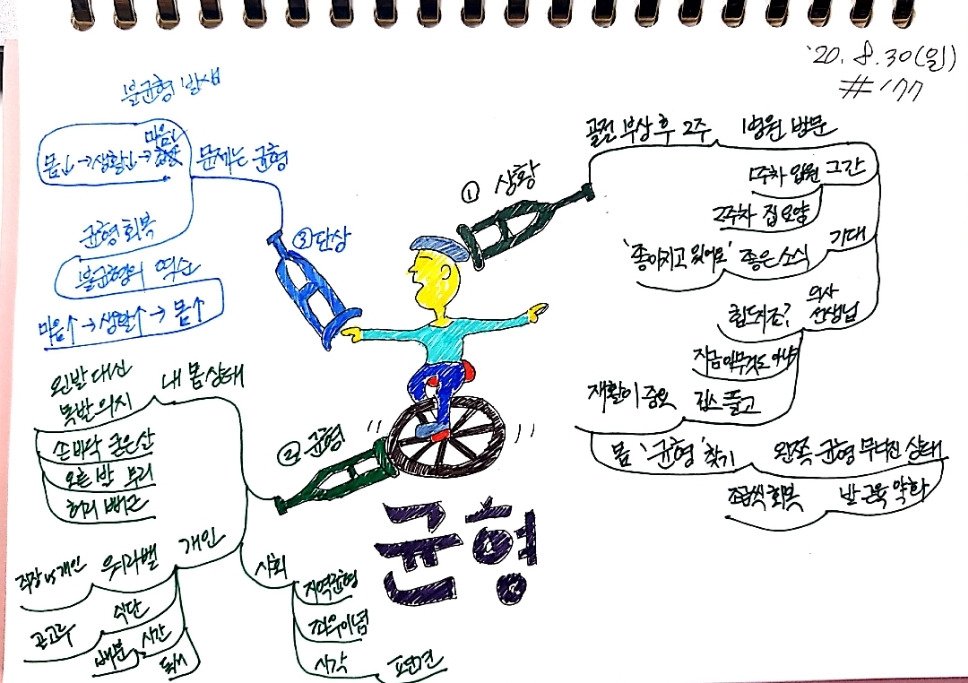 '20. 8. 30(일)
#177
① 상황
골절 부상 후 2주
병원 방문
그간
1주차 입원
2주차 집 요양
기대
좋은 소식
'좋아지고 있어요'
의사
선생님
힘드시죠?
지금 아무것도 아냐
깁스 풀고
재활이 중요
몸 '균형' 찾기
왼쪽 균형 무너진 상태
발 근육 약화
조금씩 회복
② 균형
내 몸 상태
왼발 대신
목발 의지
손바닥 굳은살
오른발 무리
허리 뻐근
개인
워라밸
직장 vs 개인
식단
골고루
시간
배분
독서
사회
지역균형
좌우이념
시각
편견
③ 단상
문제는 균형
불균형 발생
몸↓→생활↓→마음↓
균형 회복
불균형의 역순
마음↑→생활↑→몸↑
균형